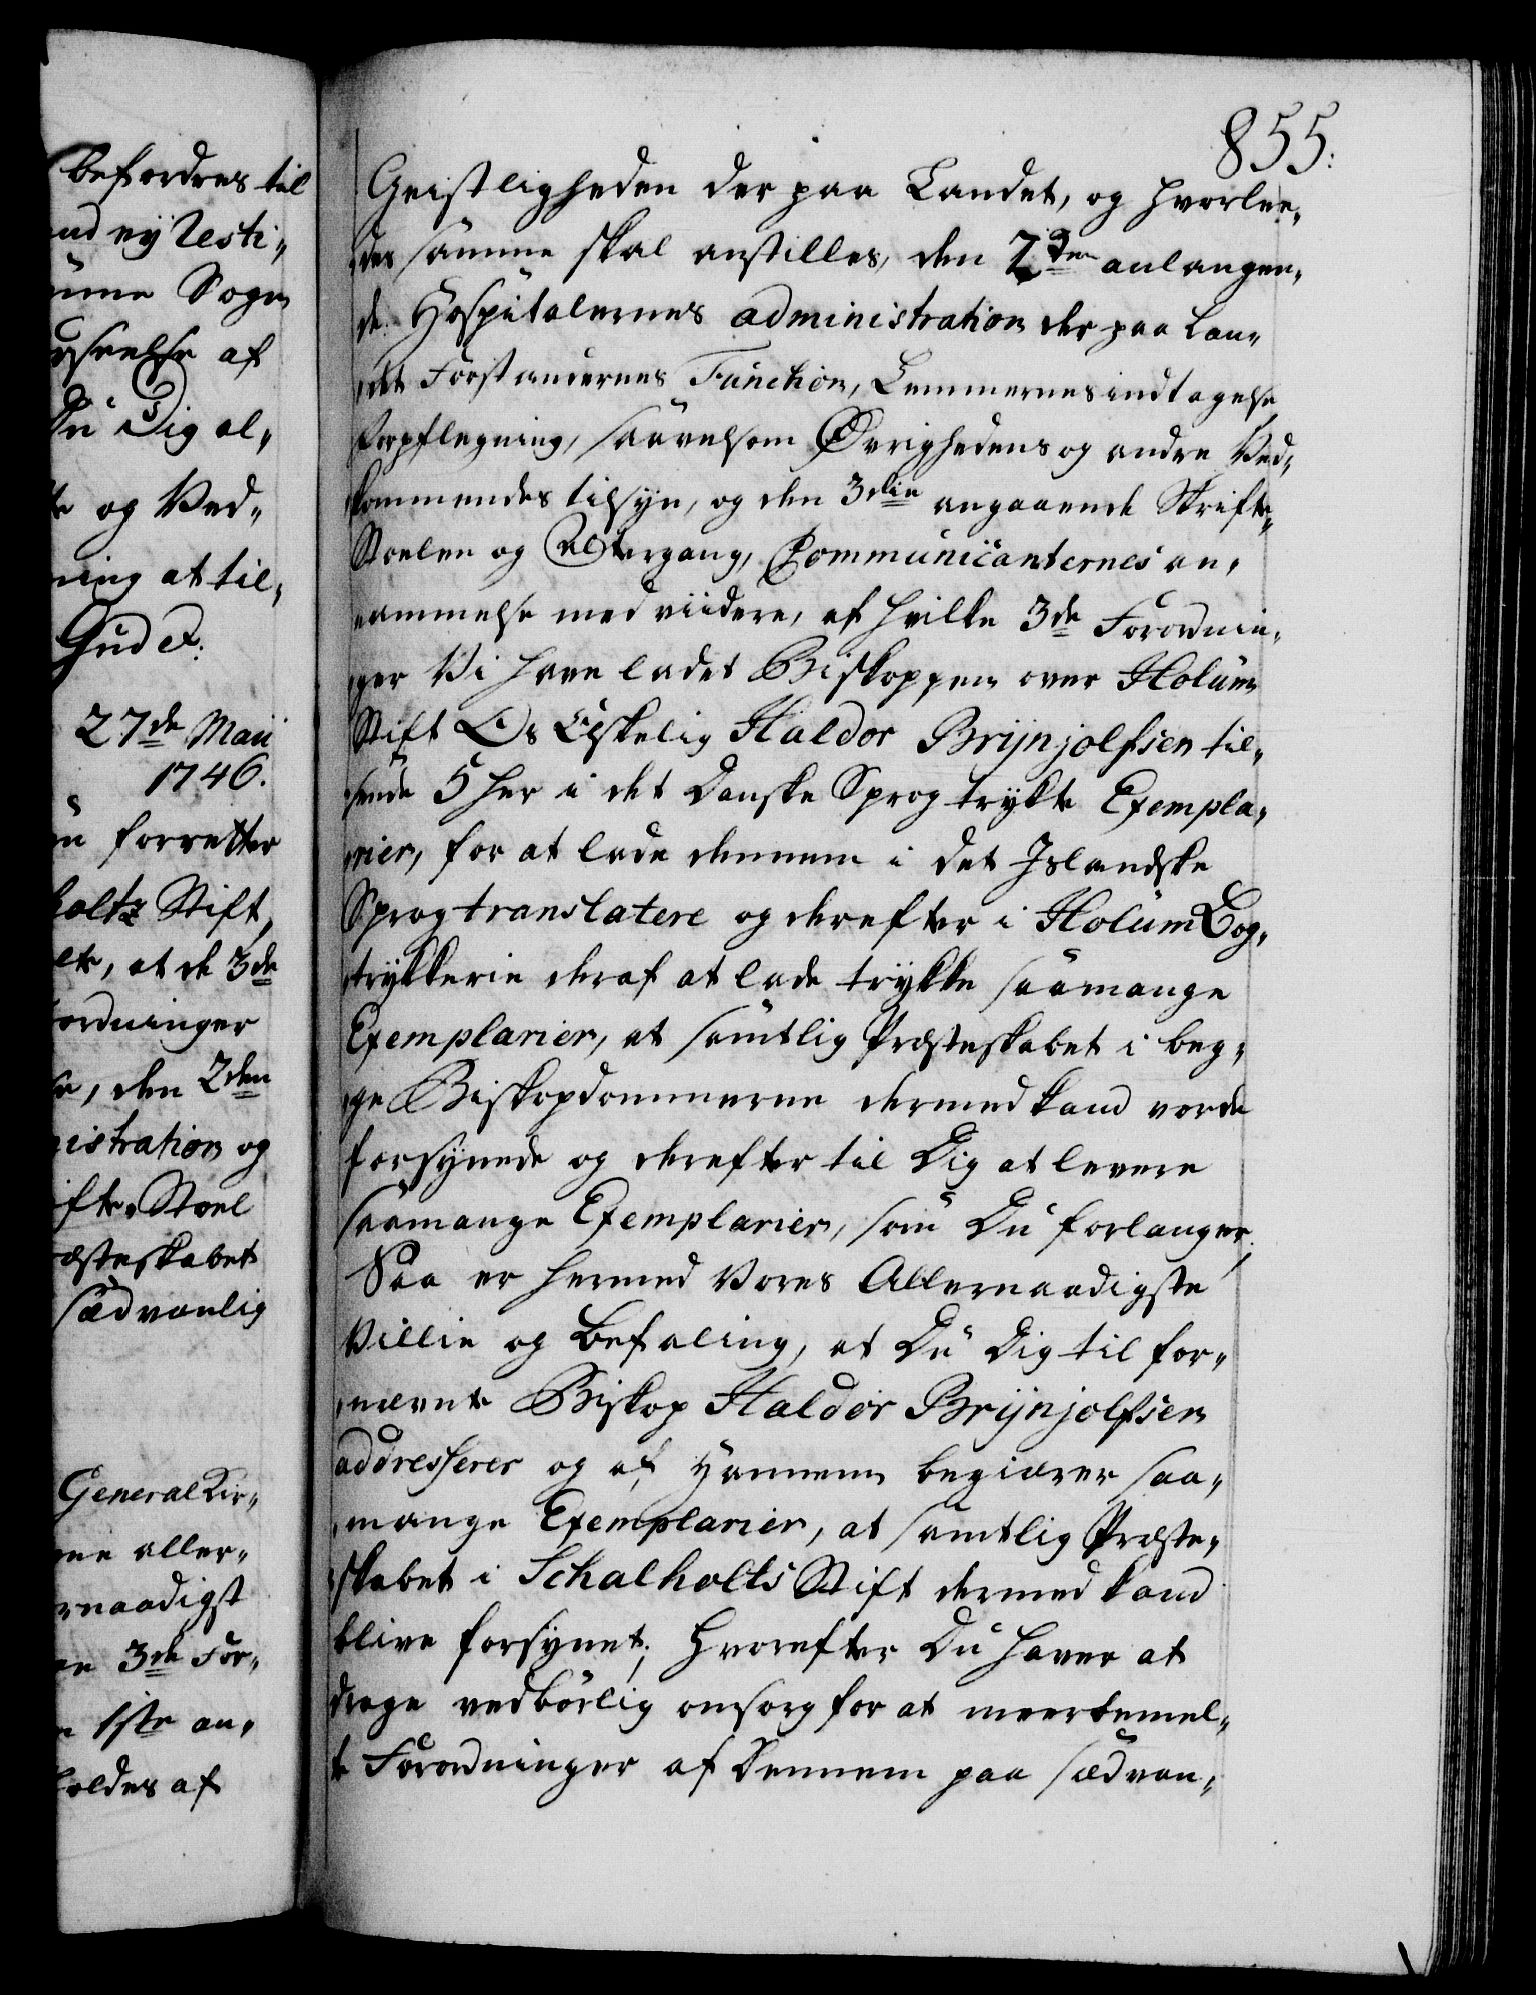 befordres til
ud nÿ Testi-
ünne Sogn
af
Du Dig al-
og Ved-
ning at til-
Gud etc:
27de Maii
1746.
forretter
holts Stift,
at de 3de
ordninger
den 2den
istration og
fte Stoel
ræsteskabet
sædvanlig
General Kir-
aller-
rnaadigst
3de For-
1ste an-
holdes af
855:
Geistligheden der paa Landet, og hvorlee-
des samme skal anstilles, den 2den anlangen-
de Hospitalernes administration der paa Lan-
det Forstandernes Function, Lemmernes indtagelse
forpflegning, saavelsom Øvrighedens og andre Ved-
kommendes tilsyn, og den 3die angaaende Skrifte-
Stoelen og Altergang, Communicanternes an-
nammelse med viidere, af hvilke 3de Forordnin-
ger Vi have ladet Biskoppen over Holum
Stift Os Elskelig Haldor Brÿnjolfsen til-
sende 5 her i det Danske Sprog trykte Exempla-
rier, for at lade dennem i det Islandske
Sprog translatere og derefter i Holum Bog-
trykkerie deraf at lade trykke saamange
Exemplarier, at samtlig Præsteskabet i beg-
ge Biskopdommerne dermed kand vorde
forsynede og derefter til Dig at levere
saamange Exemplarier, som Du forlanger;
Saa er hermed Vores Allernaadigste
Villie og Befaling, at Du Dig til for-
nævnte Biskop Haldor Brÿnjolfsen
addresserer og af hannem begiærer saa-
mange Exemplarier, at samtlig Præste-
skabet i Schalholts Stift dermed kand
blive forsynet; hvorefter Du haver at
drage vedbørlig omsorg for at meerbemel-
te Forordninger af dennem paa sædvan-